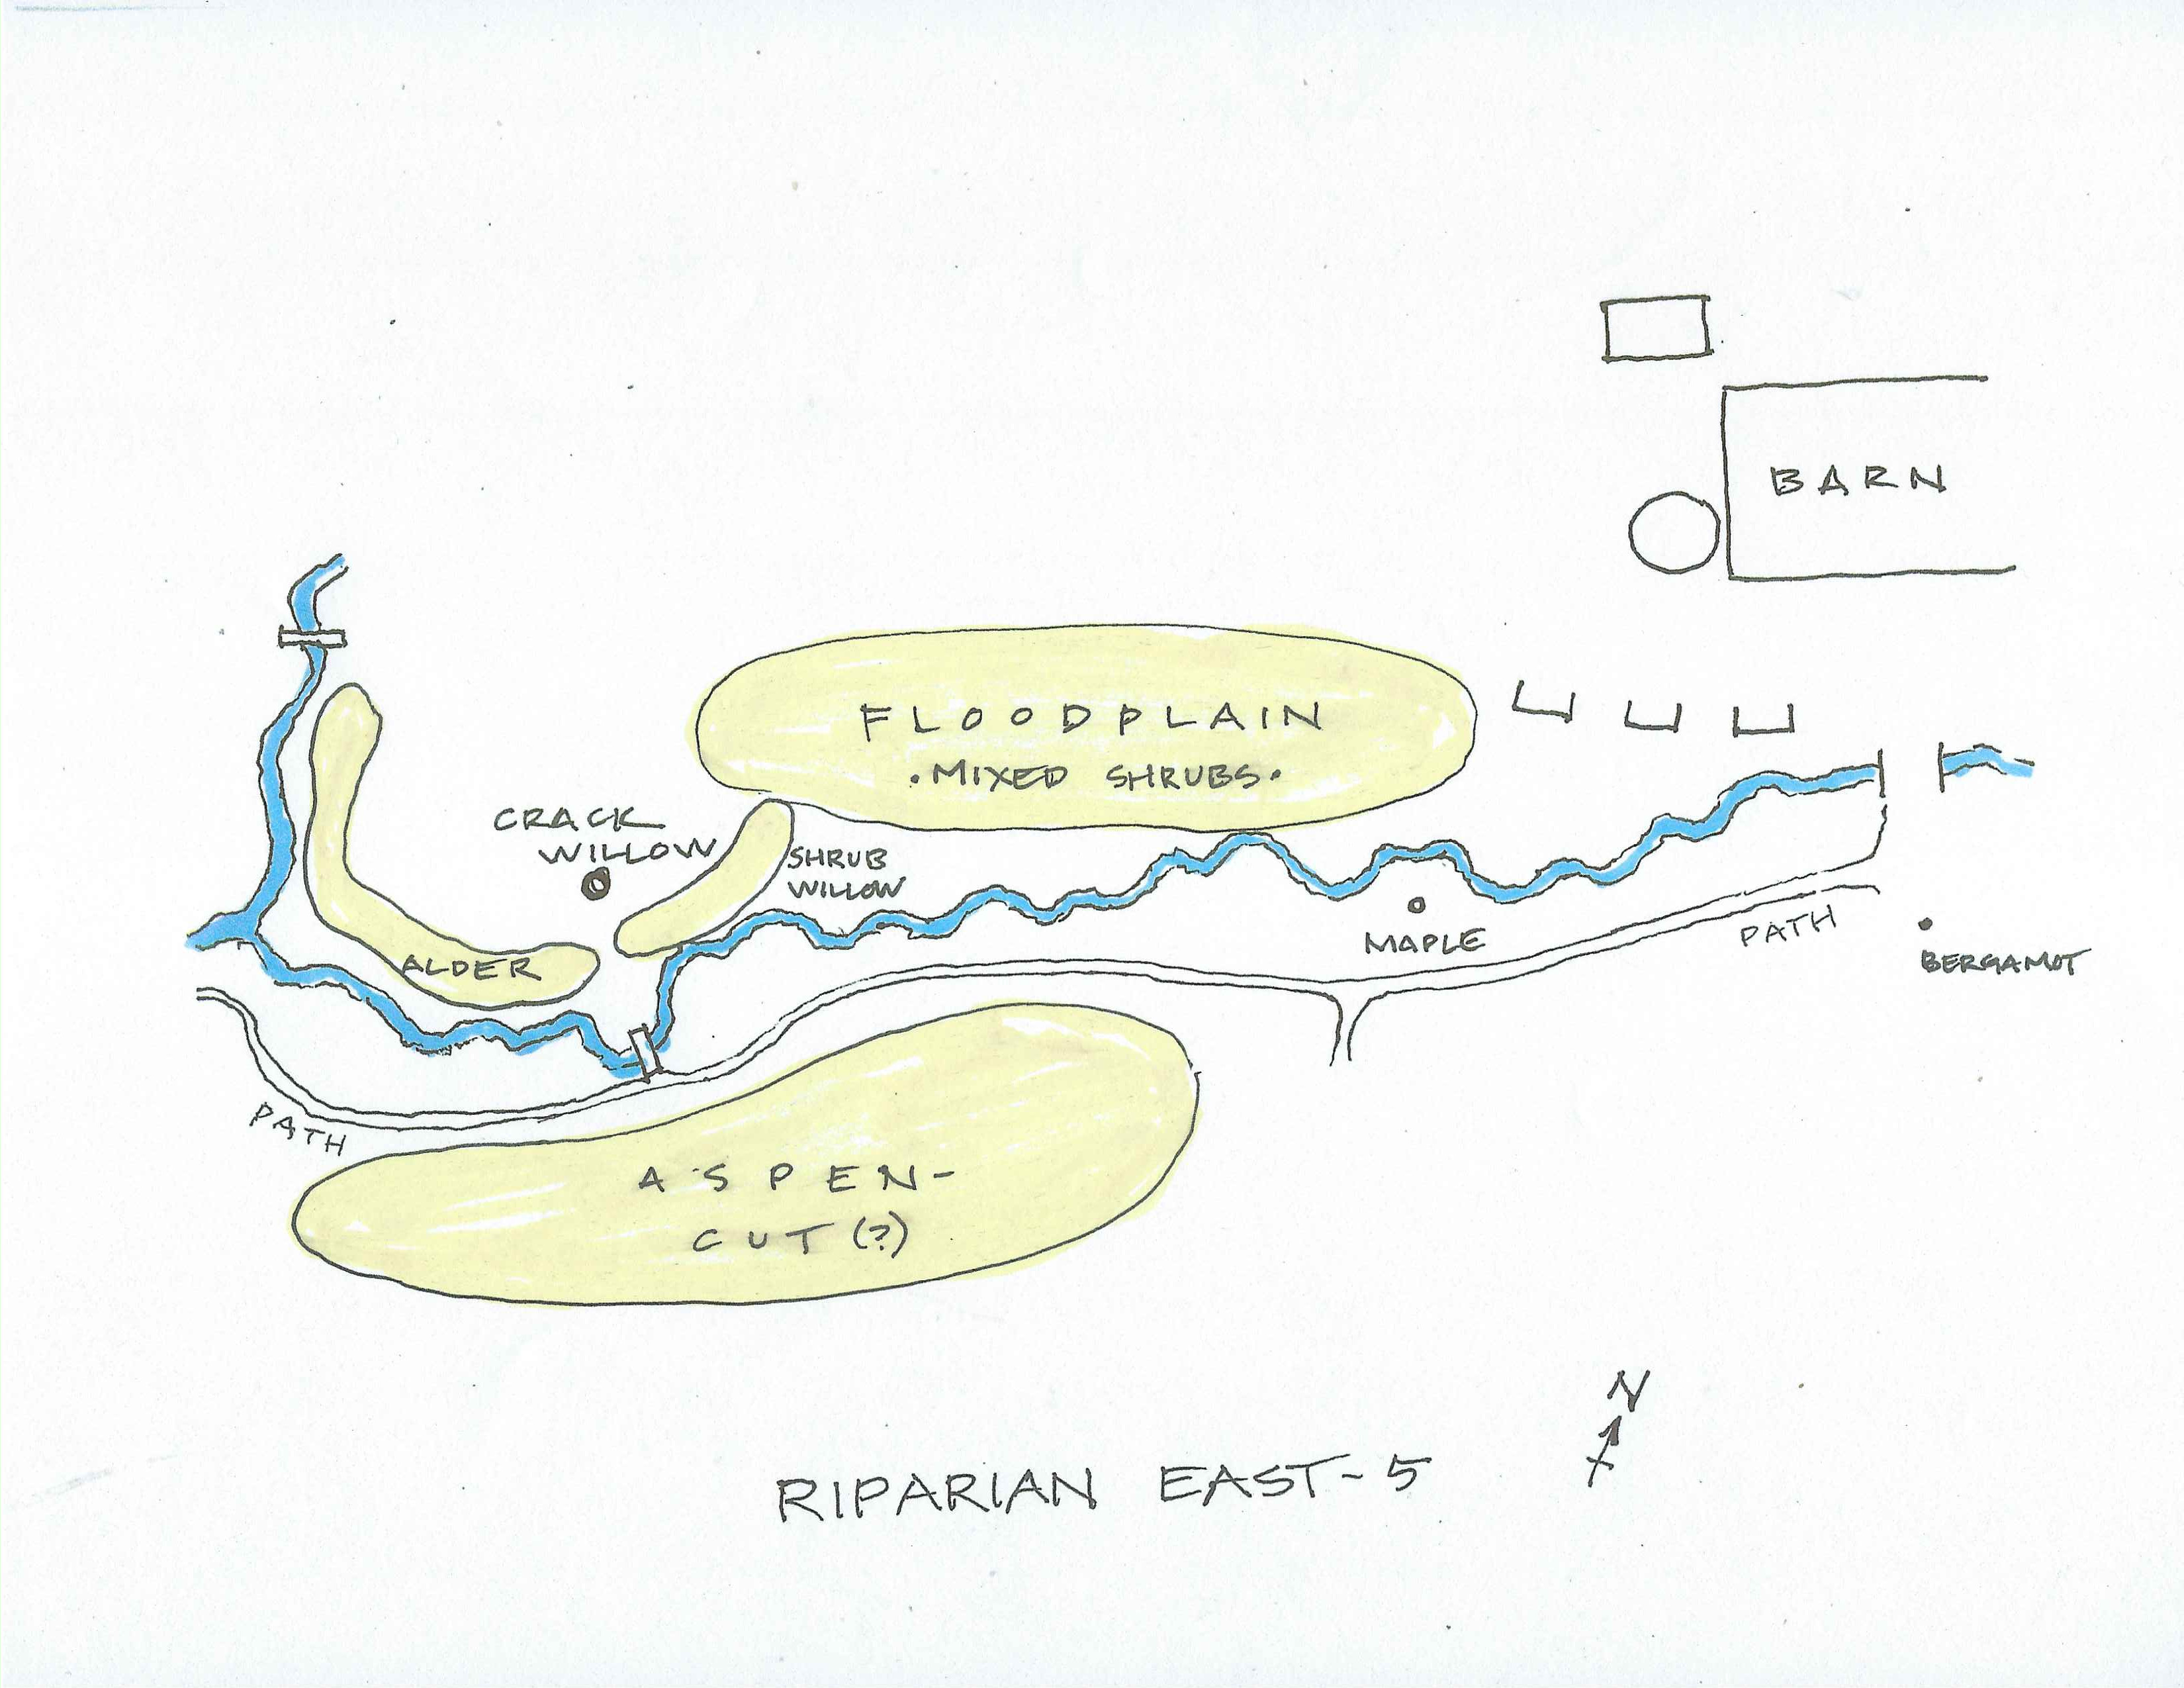 BARN
FLOODPLAIN
. MIXED SHRUBS .
CRACK
WILLOW
SHRUB
WILLOW
MAPLE
PATH
BERGAMOT
ALDER
PATH
ASPEN-
CUT (?)
N
RIPARIAN EAST-5